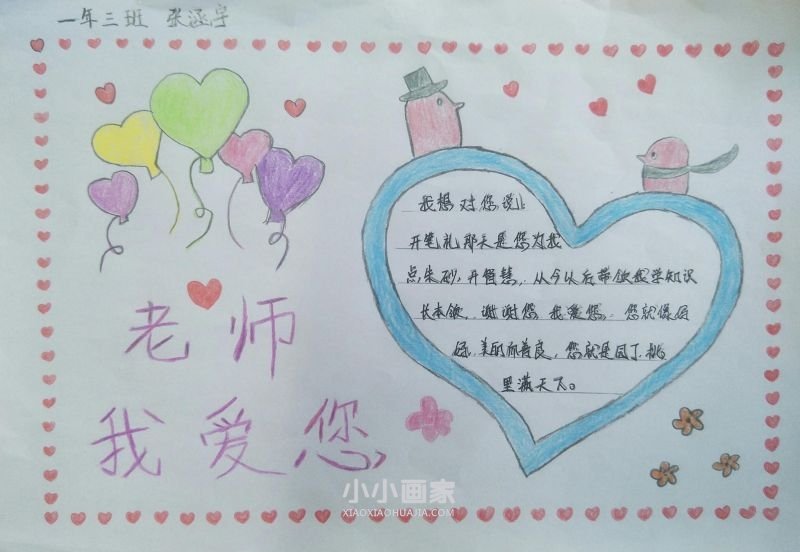 一年三班 张涵宇
我想对您说:
开笔礼那天是您为我
点朱砂,开智慧,从今以后带领我学知识
长本领,谢谢您,我爱您,您就像妈
妈,美丽而善良,您就是园丁,桃
里满天下。
老师
我爱您
小小画家
XIAOXIAOHUAJIA.COM